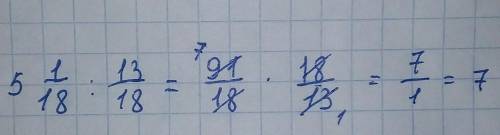 5 1/18 : 13/18 = 91/18 · 18/13 = 7/1 = 7
7
1